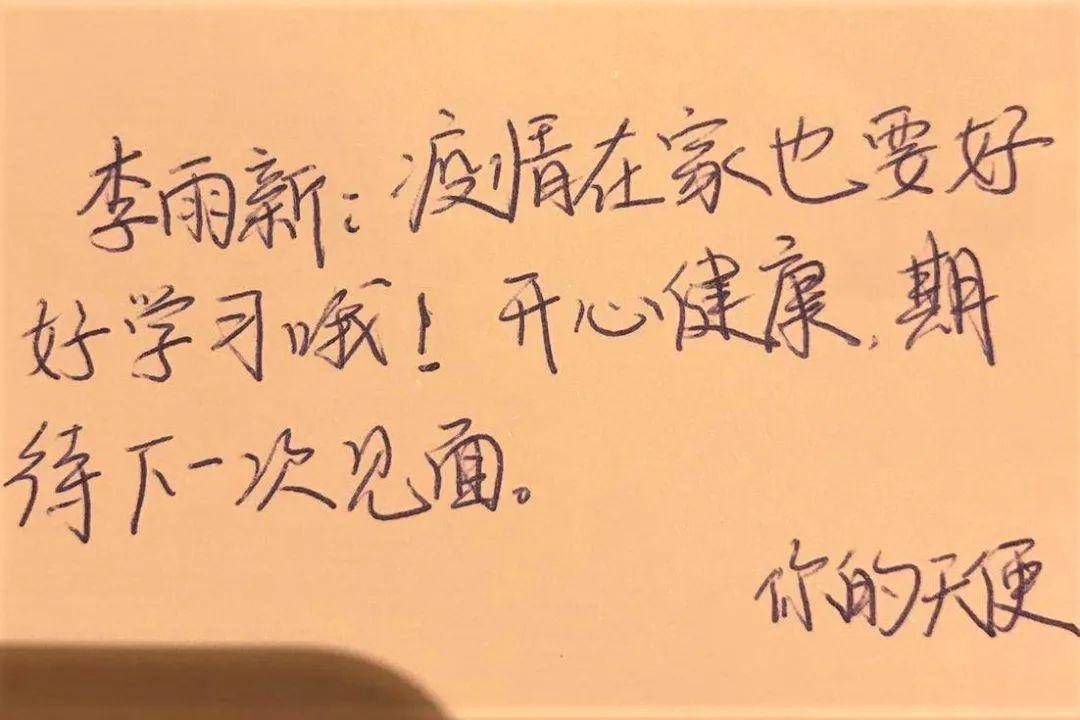 李雨新：疫情在家也要好
好学习哦！开心健康，期
待下一次见面。
你的天使